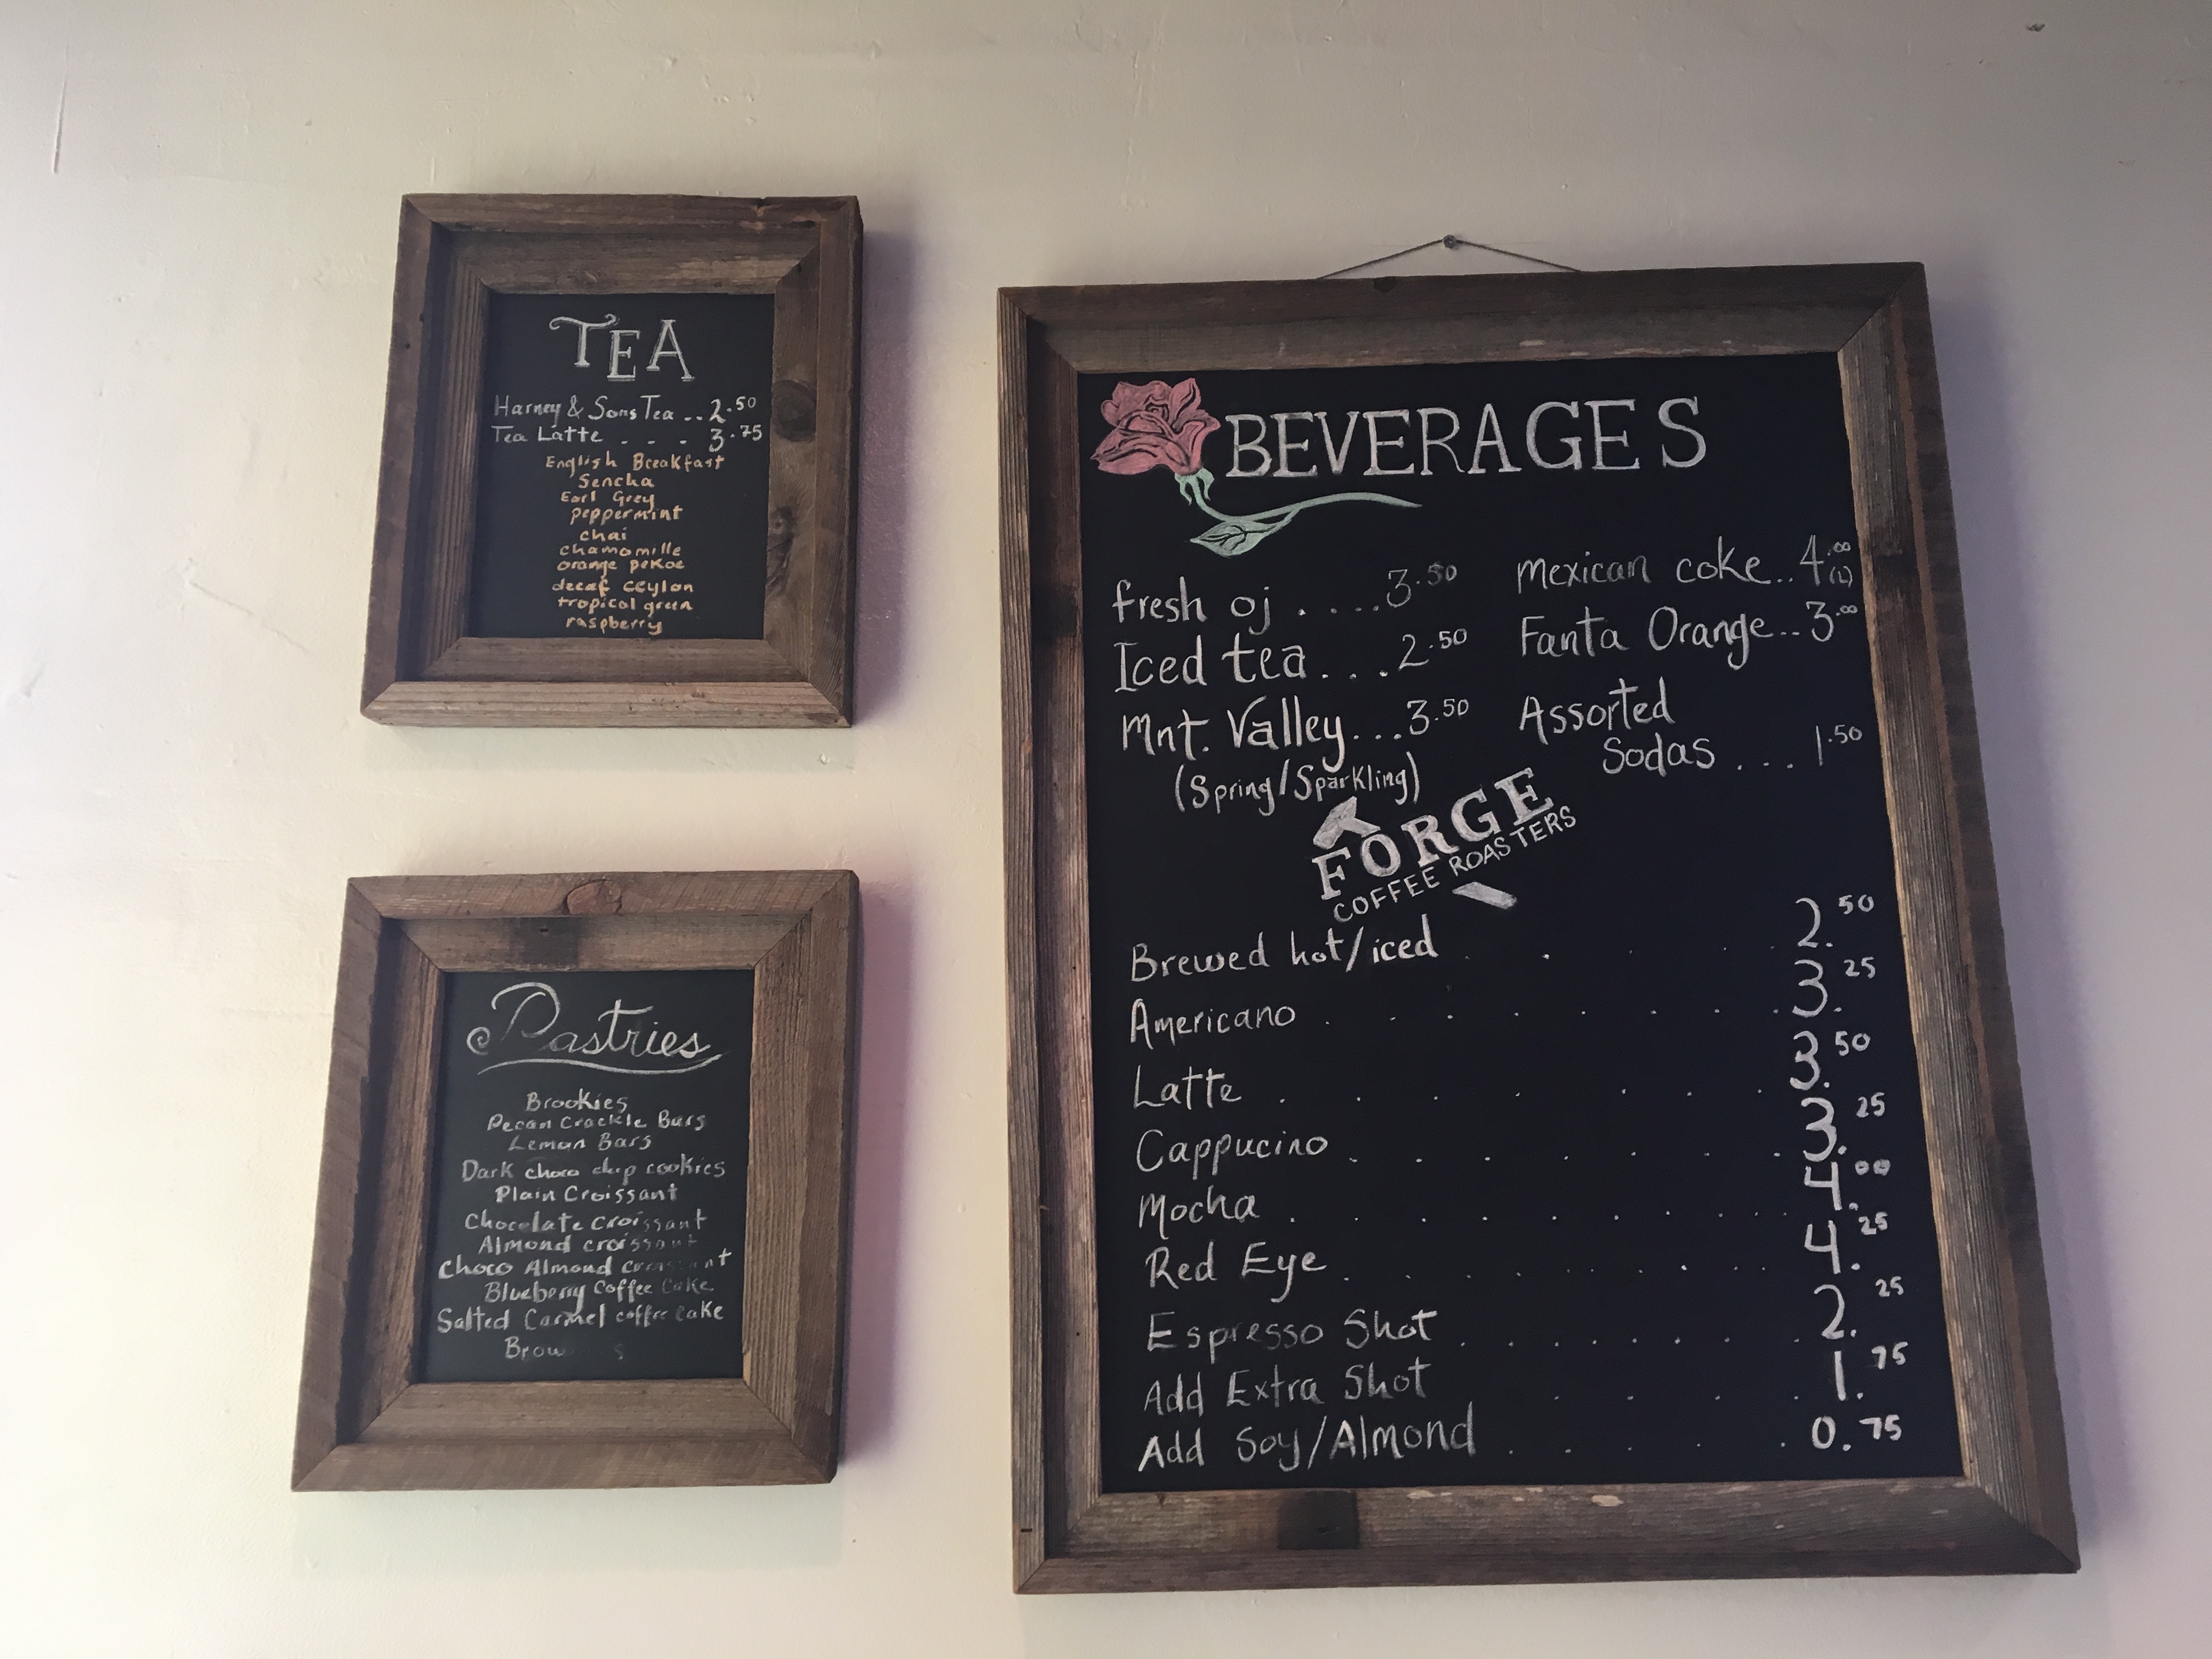 TEA
Harney & Sons Tea .. 2.50
Tea Latte . . . 3.75
English Breakfast
Sencha
Earl Grey
peppermint
chai
chamomille
orange pekoe
decaf ceylon
tropical green
raspberry
Pastries
Brookies
Pecan Crackle Bars
Lemon Bars
Dark choco chip cookies
Plain Croissant
Chocolate croissant
Almond croissant
Choco Almond croissant
Blueberry Coffee Cake
Salted Carmel coffee cake
BEVERAGES
fresh oj . . . . . 3.50
Iced tea . . . . 2.50
Mnt. Valley . . . 3.50
(Spring/Sparkling)
mexican coke .. 4.00
Fanta Orange... 3.00
Assorted
Sodas . . . 1.50
FORGE
COFFEE ROASTERS
Brewed hot/iced . . . . . 2.50
Americano . . . . . . . 3.25
Latte . . . . . . 3.50
Cappucino . . . . . . . 3.25
Mocha . . . . . . . . . 4.00
Red Eye . . . . . . . . . 4.25
Espresso Shot . . . . . . . . 2.25
Add Extra Shot . . . . 1.75
Add Soy/Almond . . . . . 0.75